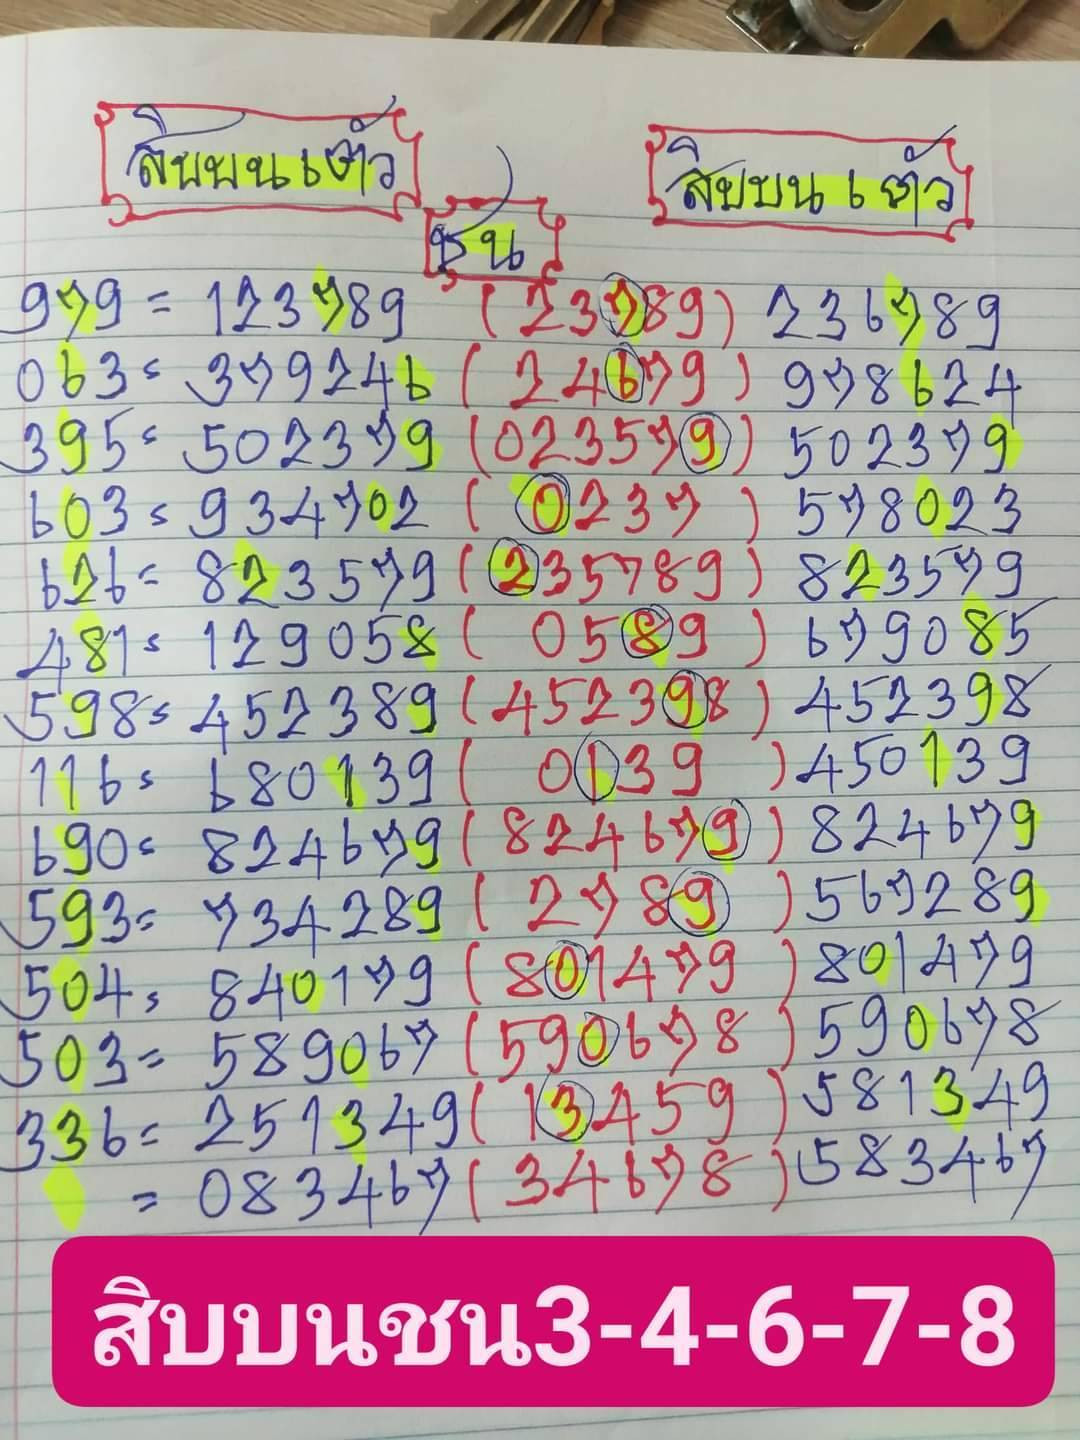 สิบบน 6 ตัว สิบบน 6 ตัว
ชน
979 = 123789 (23789) 236789
063 = 379246 (24679) 978624
395 = 502379 (023579) 502379
603 = 934702 (0237) 578023
626 = 823579 (235789) 823579
481 = 129058 (0589) 679085
598 = 452389 (452398) 452398
116 = 680139 (0139) 450139
690 = 824679 (824679) 824679
593 = 734289 (2789) 567289
504 = 840179 (801479) 801479
503 = 589067 (590678) 590678
336 = 251349 (13459) 581349
= 083467 (34678) 583467
สิบบนชน3-4-6-7-8